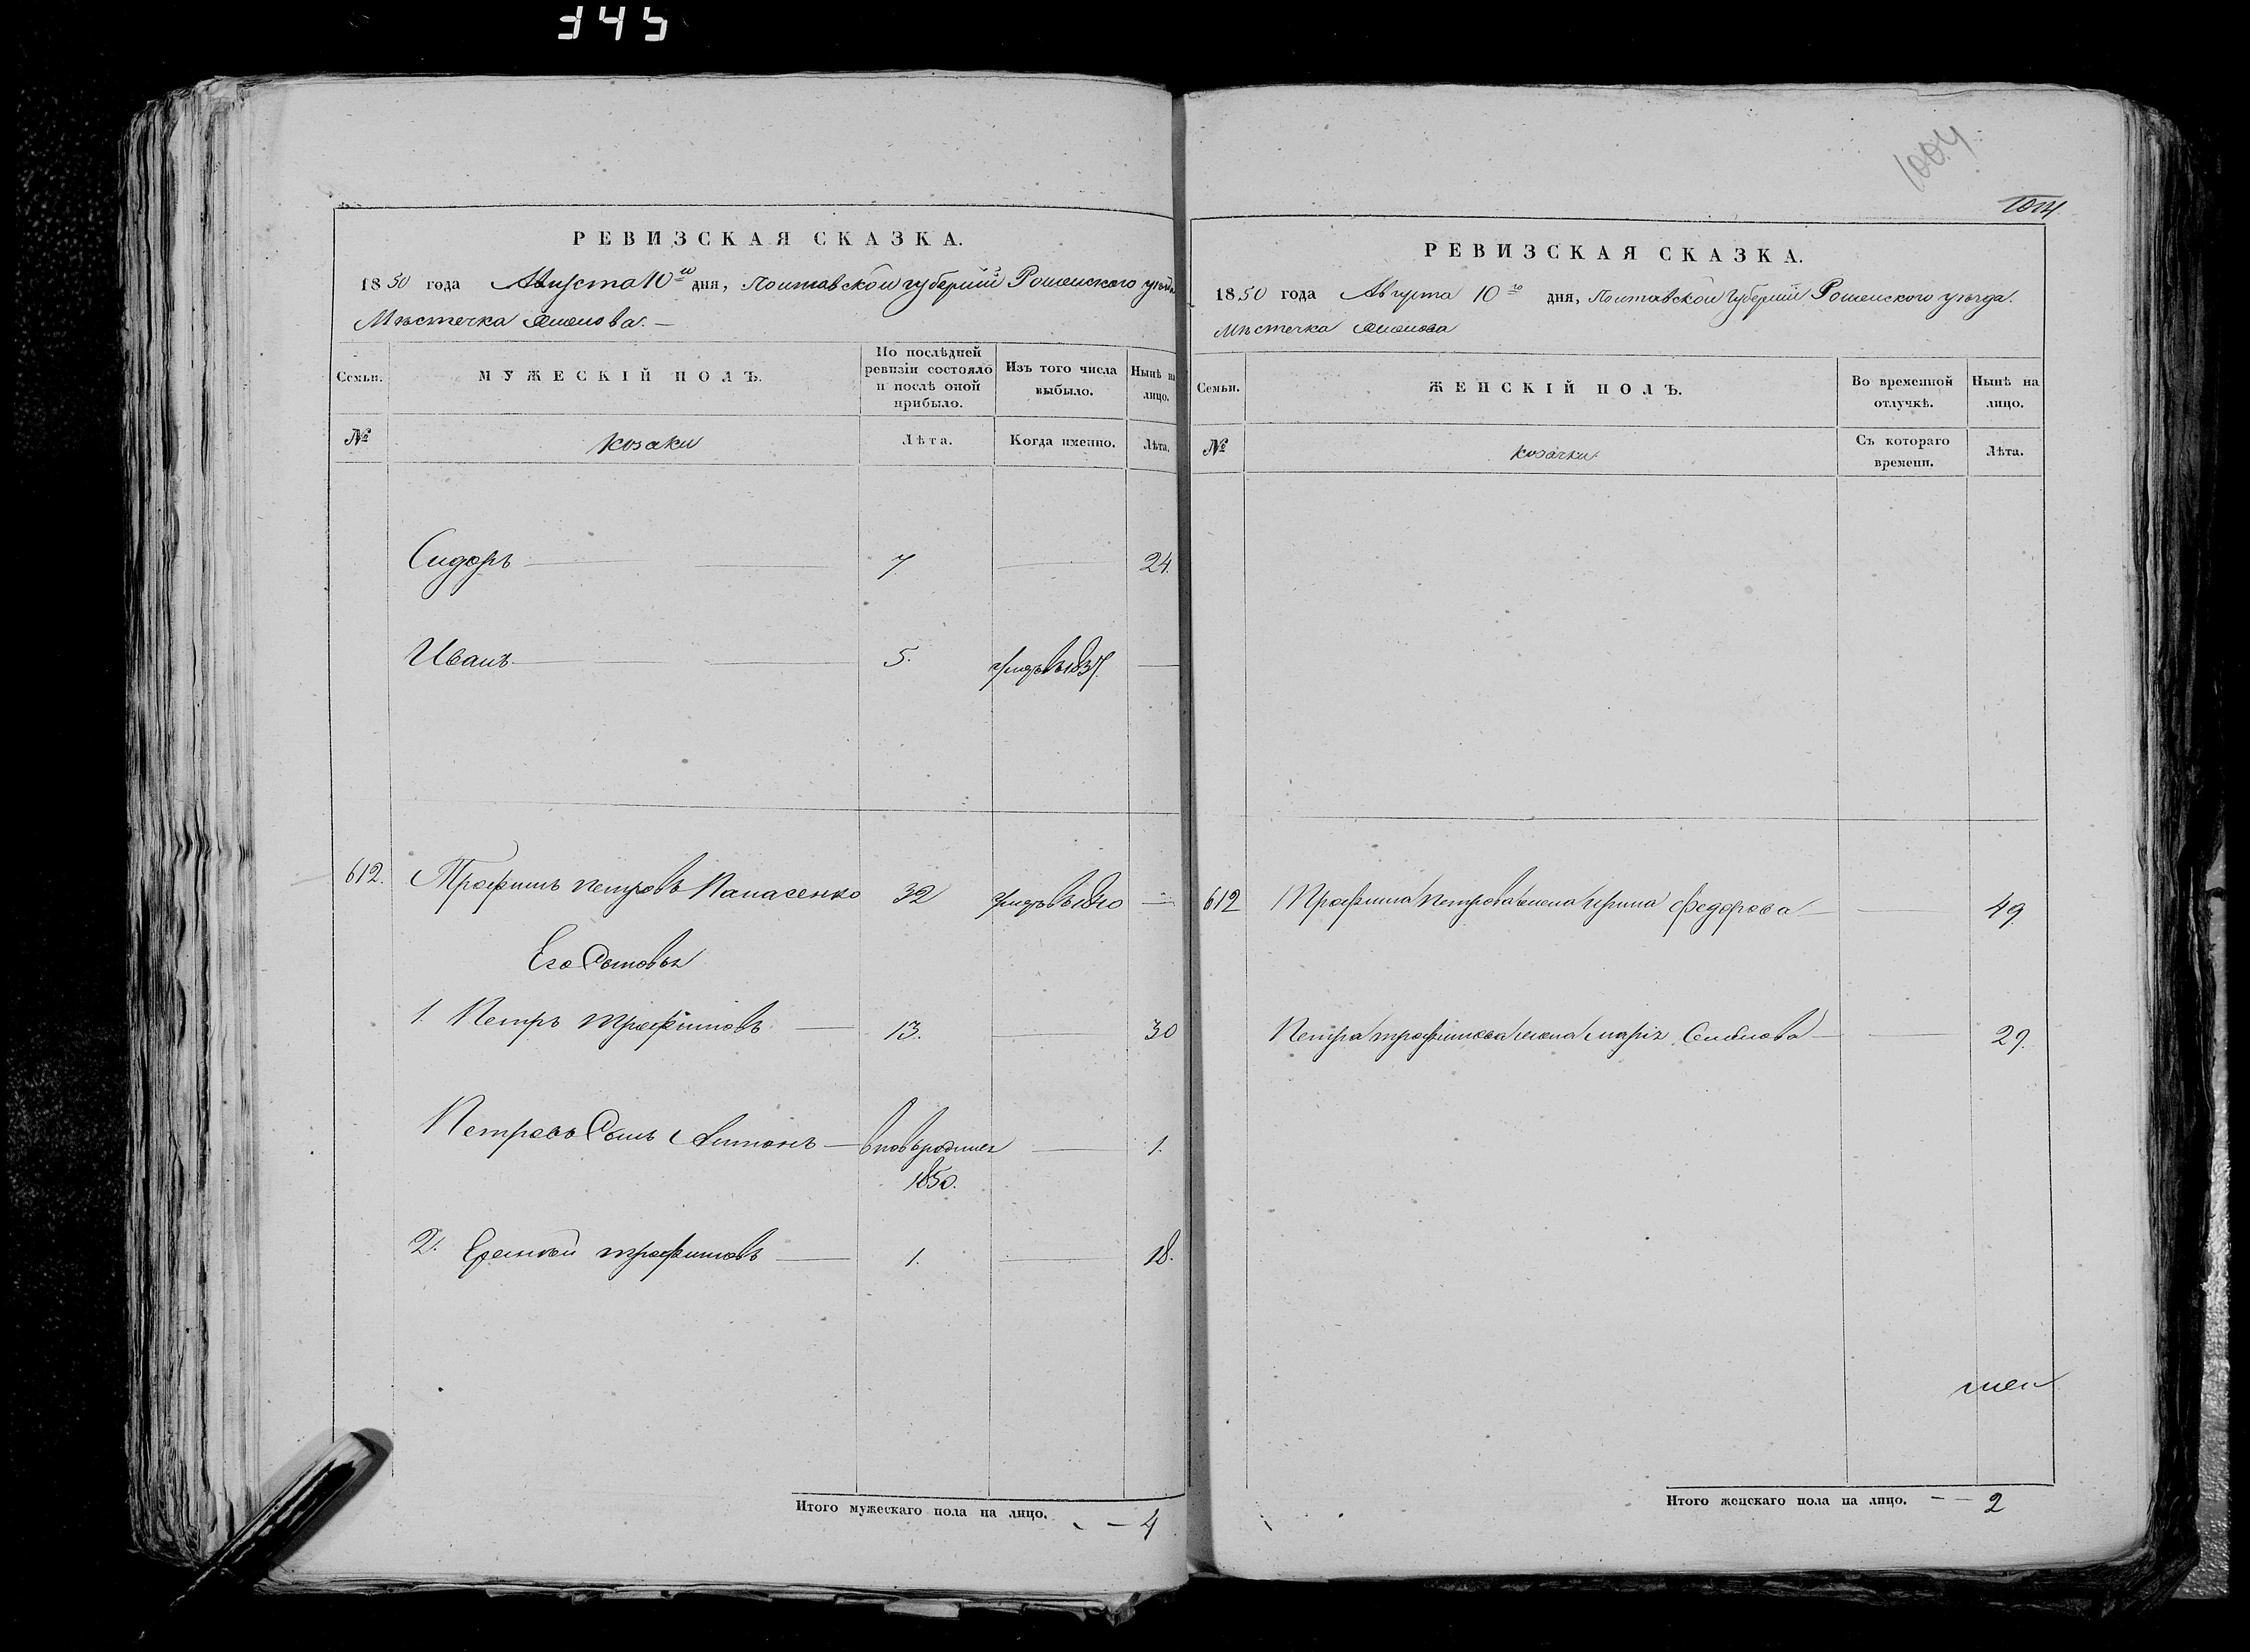 345
1004
РЕВИЗСКАЯ СКАЗКА.
1850 года Августа 10го дня, Полтавской губерніи Роменского уѣзда
Мѣстечка Смелова.
Семьи. МУЖЕСКІЙ ПОЛЪ. По послѣдней ревизіи состояло и послѣ оной прибыло. Изъ того числа выбыло. Нынѣ на лицо.
№ козаки Лѣта. Когда именно. Лѣта.
Сидоръ 7. 24.
Иванъ 5. умръ въ 1837.
612. Трофимъ Петровъ Панасенко 32 умръ въ 1840
Его Сыновья
1. Петръ Трофимовъ 13. 30
Петровъ Сынъ Антонъ вновьродился 1.
1850.
2. Трофимовъ 1. 18.
Итого мужескаго пола на лицо. 4
РЕВИЗСКАЯ СКАЗКА.
1850 года Августа 10го дня, Полтавской Губерніи Роменского уѣзда.
Мѣстечка Смелова
Семьи. ЖЕНСКІЙ ПОЛЪ. Во временной отлучкѣ. Нынѣ на лицо.
№ козачки Съ котораго времени. Лѣта.
612 Трофима Петрова жена Ирина Федорова 49
Петра Трофимова жена Марія 29.
Итого женскаго пола на лицо. 2